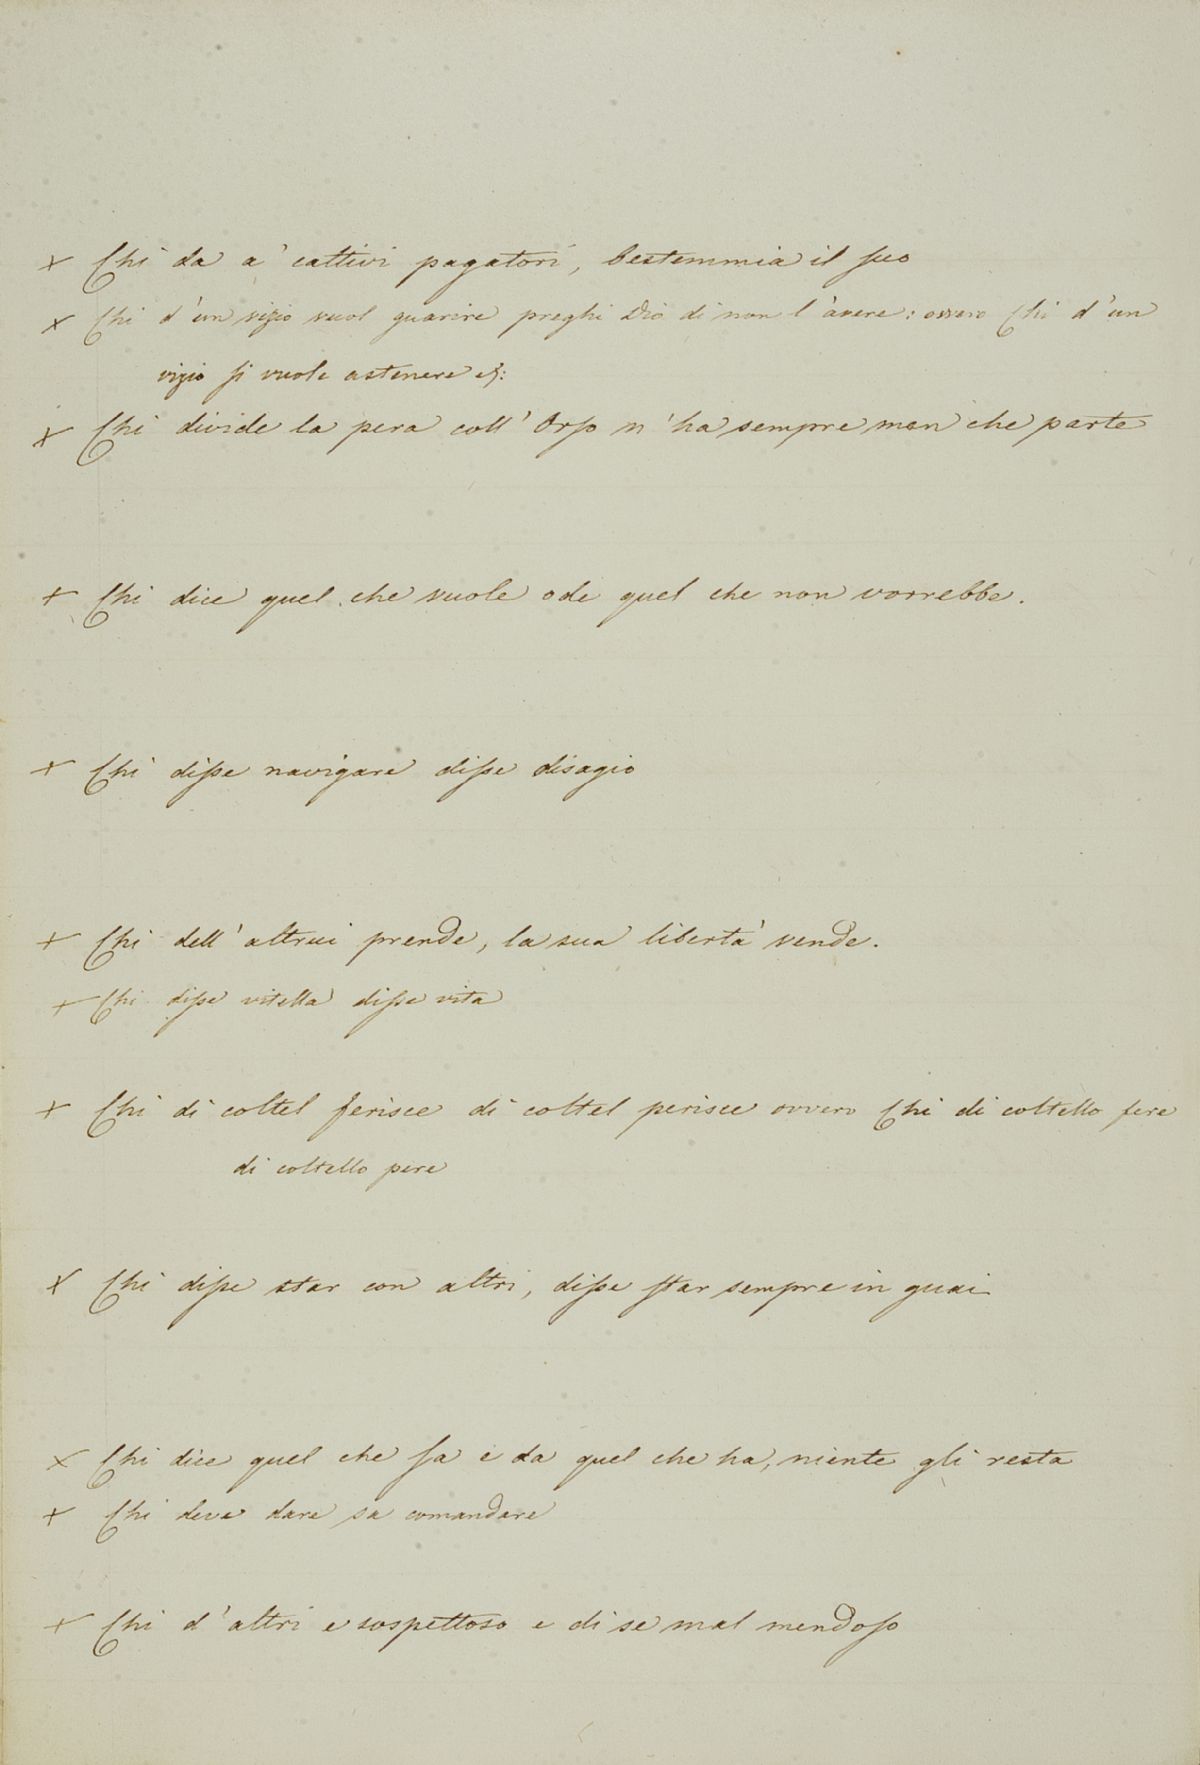 × Chi da a' cattivi pagatori, bestemmia il suo
× Chi d'un vizio vuol guarire preghi Dio di non l'avere: ossero Chi d'un
vizio si vuole astenere &:
× Chi divide la pera coll' Orso n' ha sempre men che parte
+ Chi dice quel che vuole ode quel che non vorrebbe.
+ Chi disse navigare disse disagio
+ Chi dell' altrui prende, la sua libertà vende.
+ Chi disse vitella disse vita
+ Chi di coltel ferisce di coltel perisce ovvero Chi di coltello fere
di coltello pere
× Chi disse star con altri, disse star sempre in guai
× Chi dice quel che sa e da quel che ha, niente gli resta
+ Chi deve dare sa comandare
+ Chi d' altri e sospettoso e di se mal mendoso